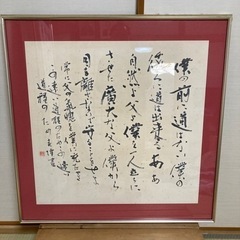 僕の前に道はない 僕の
後ろに道は出来る ああ
自然よ 父よ 僕を一人立ちに
させた廣大な父よ 僕から
目を離さないで守ることをせよ
常に父の気魄を僕に充たせよ
この遠い道程のため この遠い
道程のため